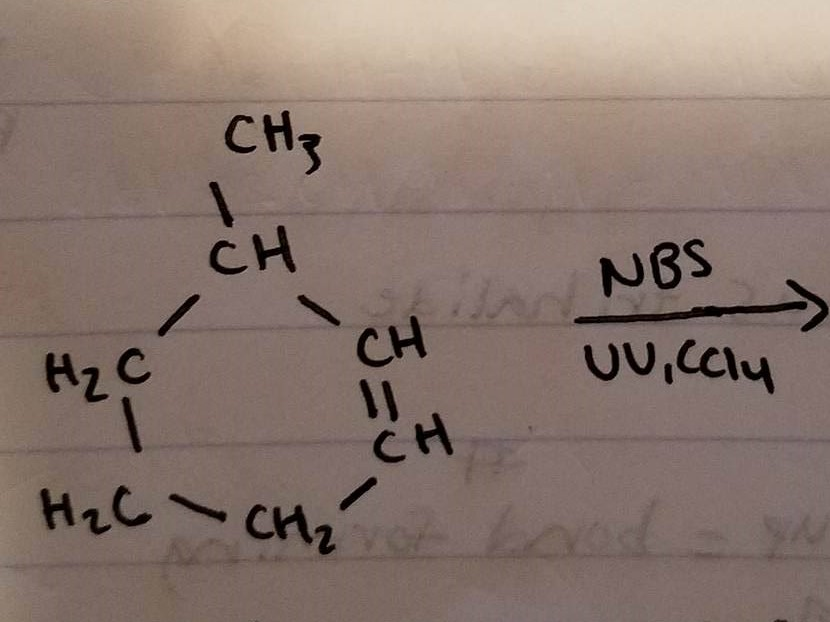 CH3
CH
H2C
CH
CH
H2C
CH2
NBS
UV, CCl4